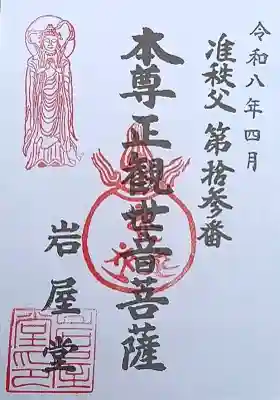 令和八年四月
准秩父 第拾参番
本尊正観世音菩薩
岩屋堂